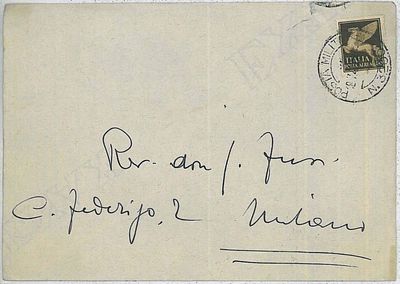 ITALIA
POSTA AEREA
POSTA MILIT
Rev. don
C. Federigo, 2 Milano